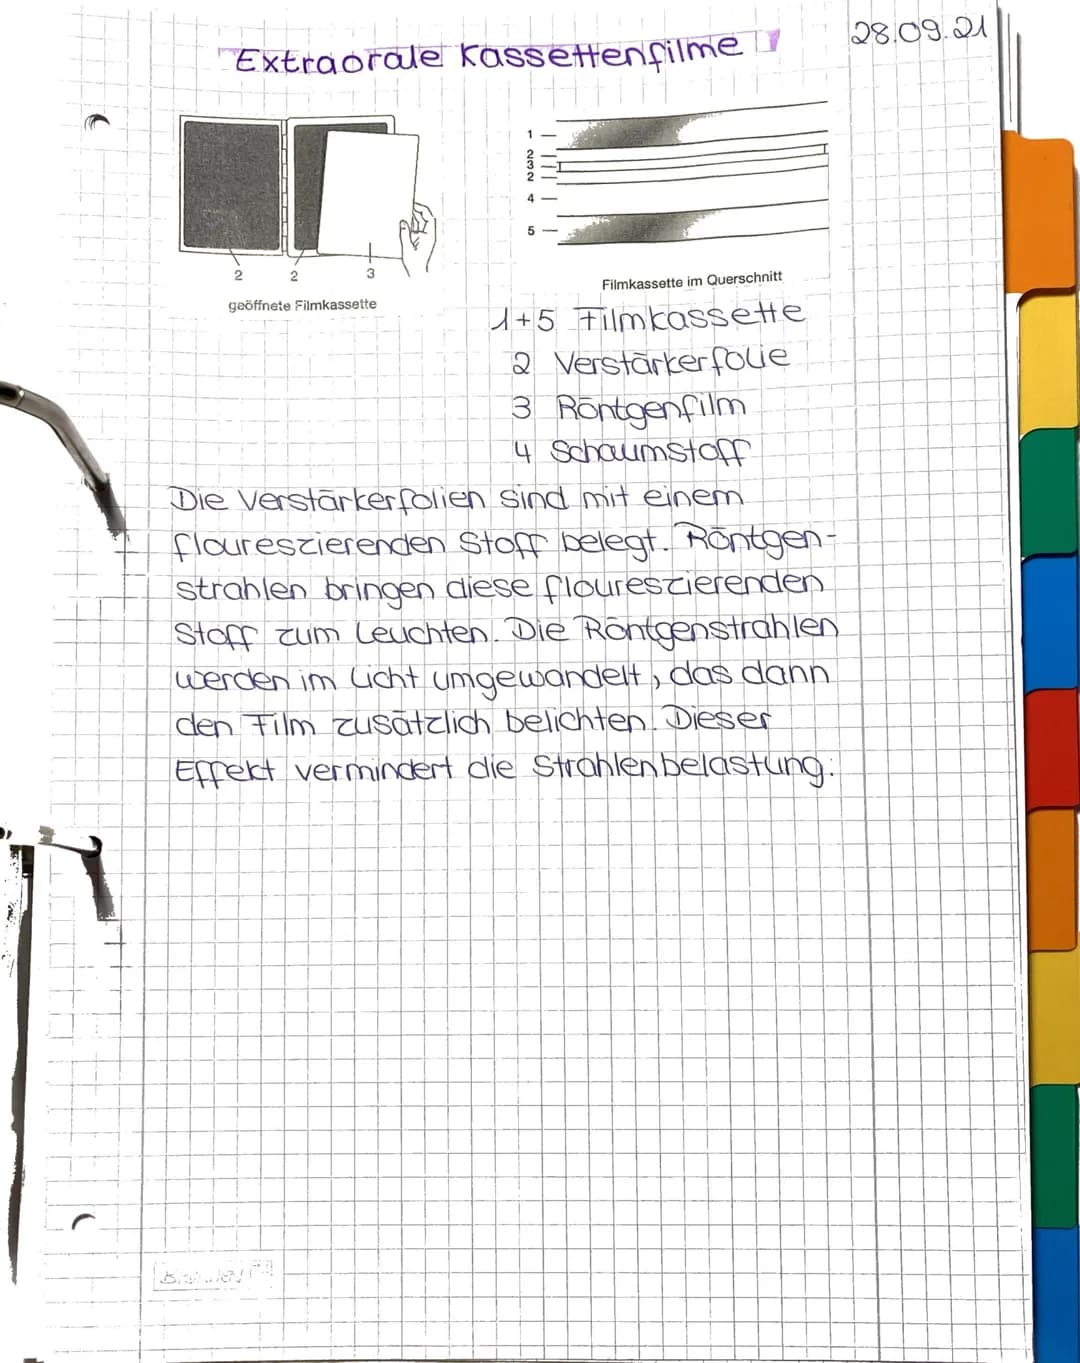 Extraorale Kassettenfilme
28.09.21
1
2
3
2
4
5
2
2
3
geöffnete Filmkassette
Filmkassette im Querschnitt
1+5 Filmkassette
2 Verstärkerfolie
3 Röntgenfilm
4 Schaumstoff
Die Verstärkerfolien sind mit einem
floureszierenden Stoff belegt. Röntgen-
strahlen bringen diese floureszierenden
Stoff zum Leuchten. Die Röntgenstrahlen
werden im Licht umgewandelt, das dann
den Film zusätzlich belichten. Dieser
Effekt vermindert die Strahlenbelastung.